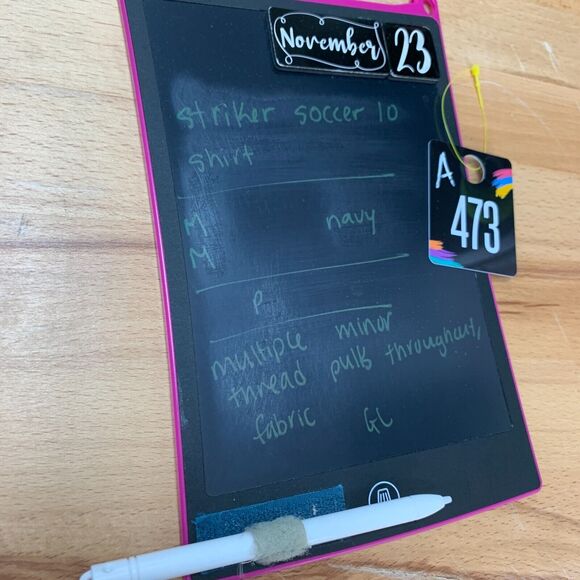 November 23
striker soccer 10
shirt
A
473
M navy
M
P
multiple minor
thread pulls throughout,
fabric GL